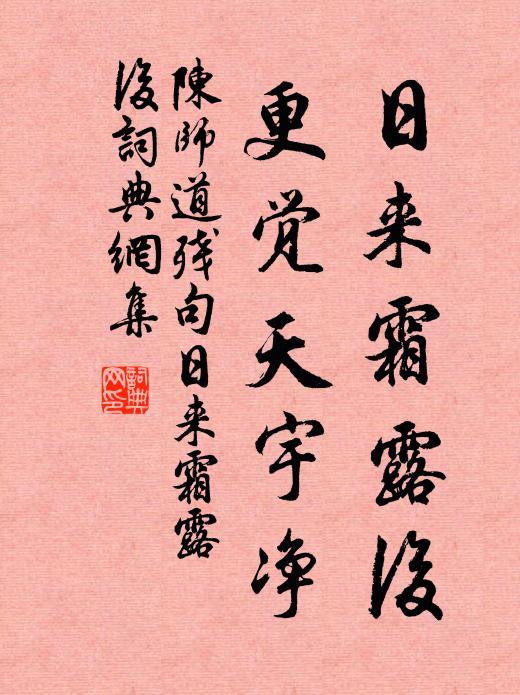 日来霜露後
更觉天宇净
陳師道残句日来霜露
後詞典網集
詞典網印